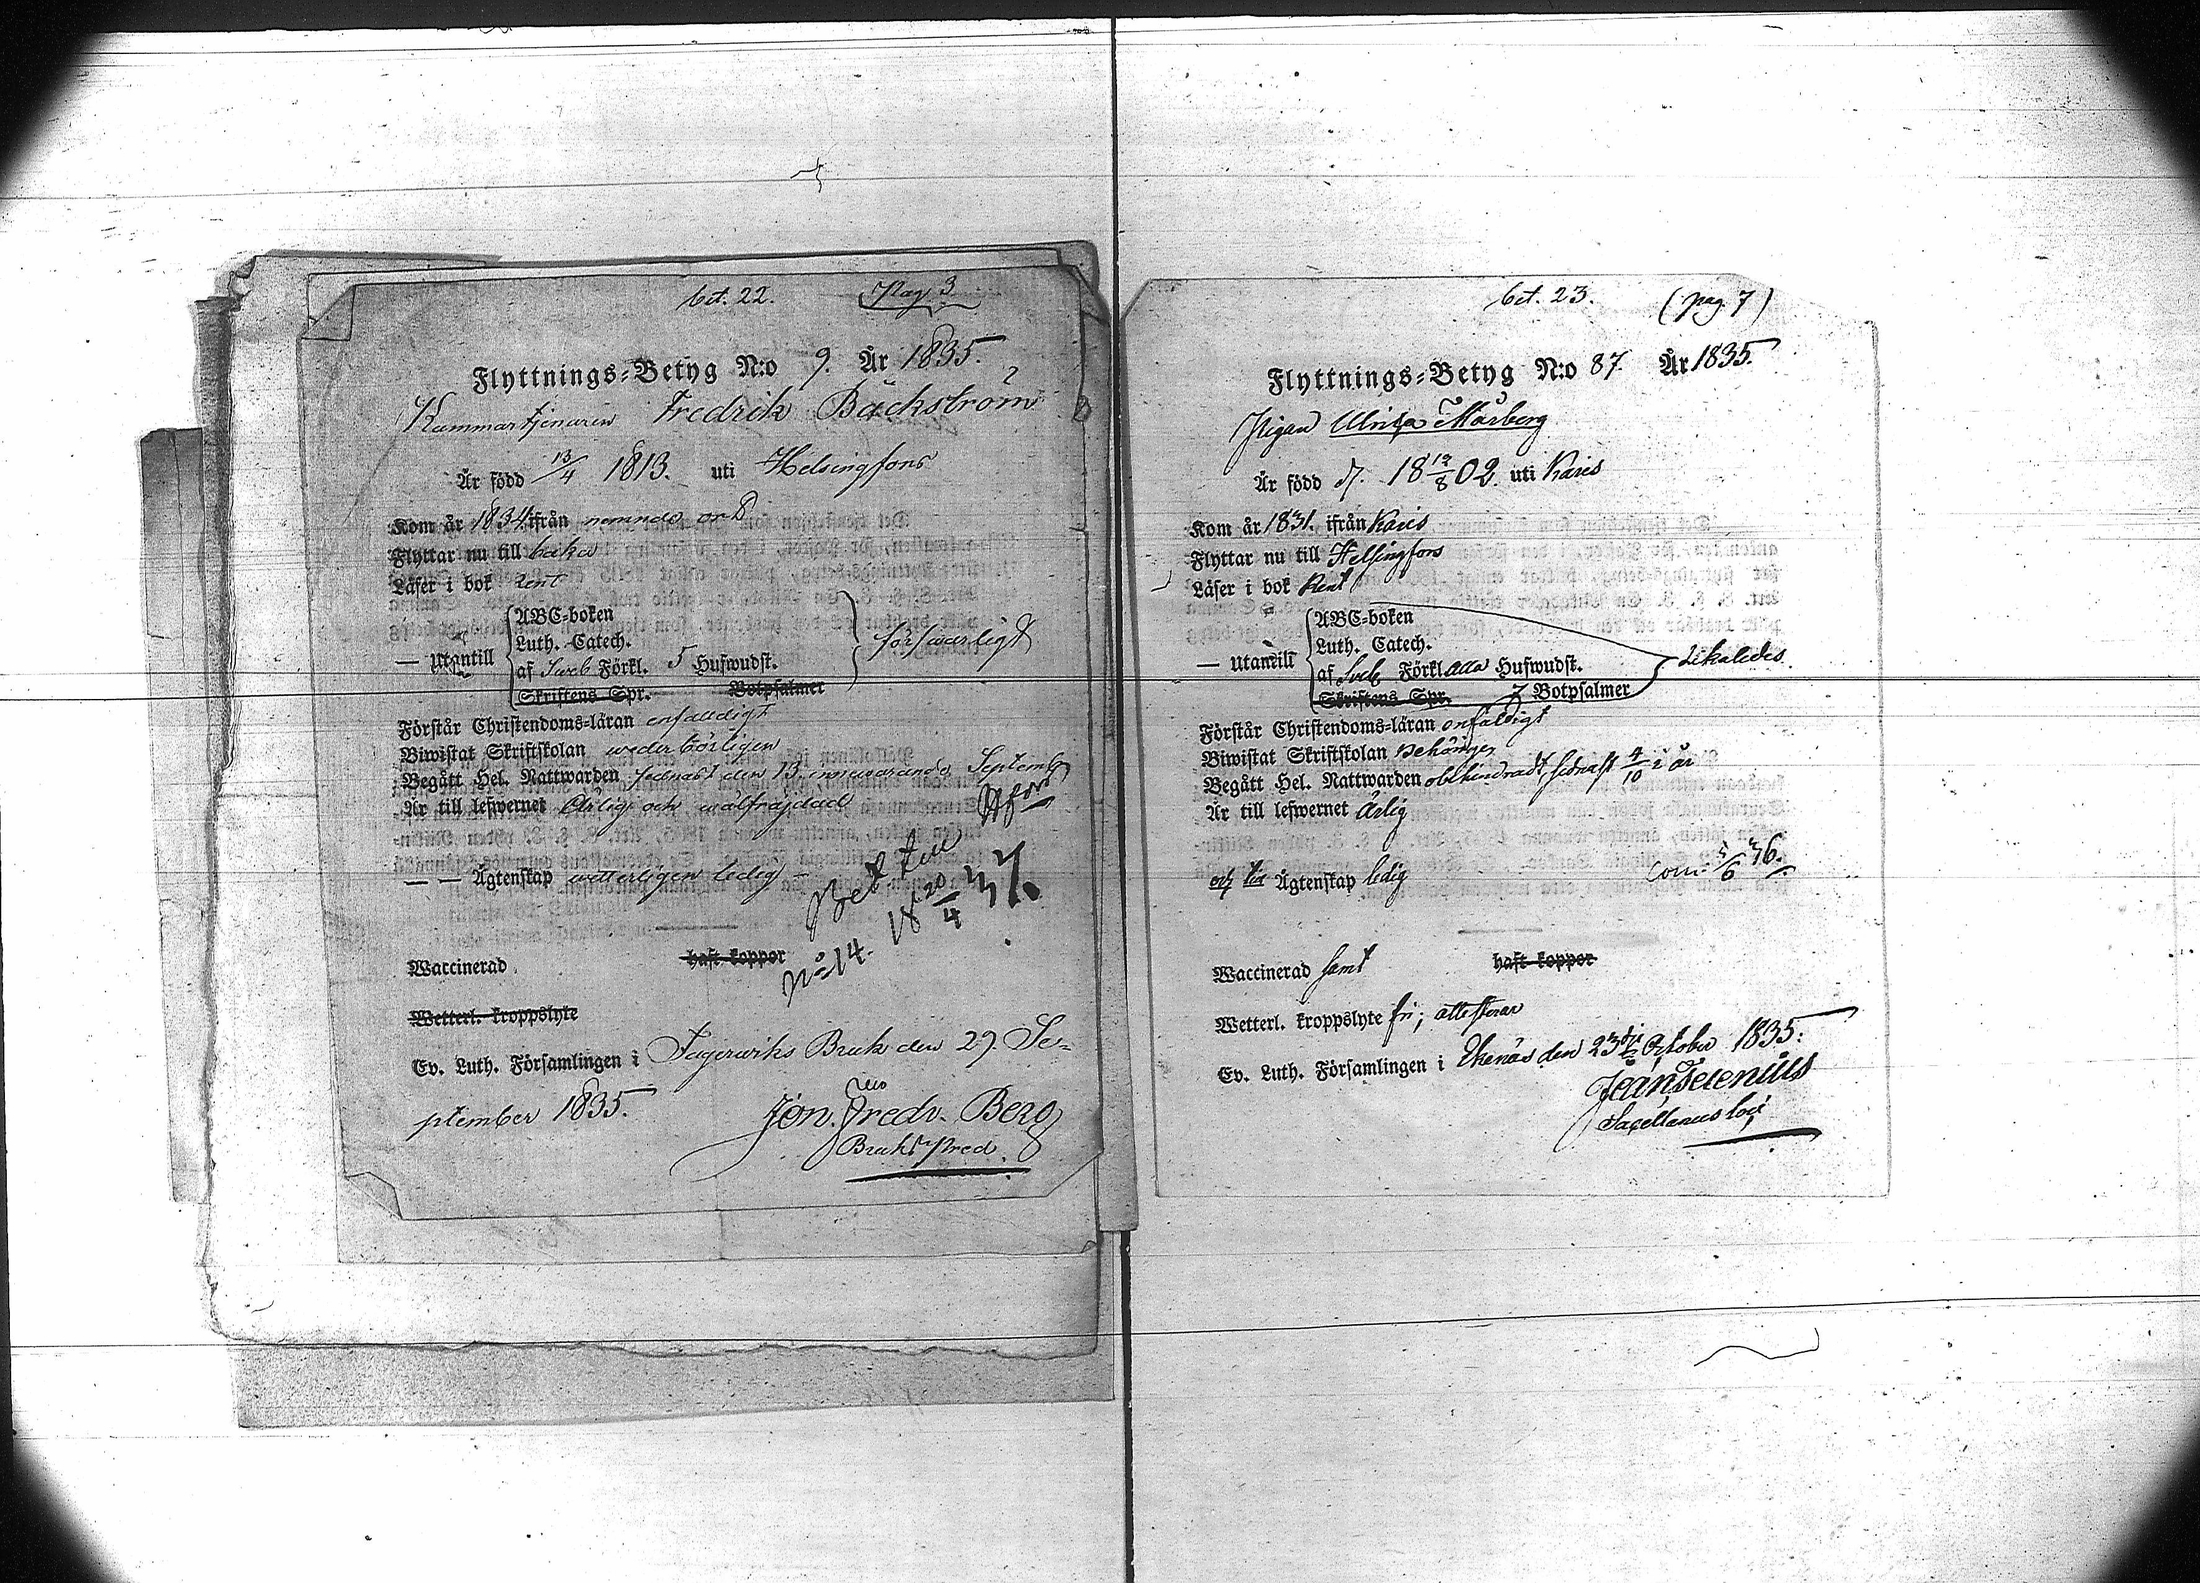 bet. 22. Pag 3
Flyttnings-Betyg N:o 9. År 1835.
Kammartjenaren Fredrik Bäckström
Är född 13/4 1813. uti Helsingfors
Kom år 1834 ifrån nemnde ort
Flyttar nu till baka
Läser i bok rent
ABC-boken
Luth. Catech.
— Utantill af Sveb Förkl. 5 Hufwudst. försvarligt
Skriftens Spr. Botpsalmer
Förstår Christendoms-läran enfalldigt
Biwistat Skriftskolan wederbörligen
Begått Hel. Nattwarden sednast den 13 innevarande Septemb
Är till lefwernet Ärlig och wälfrejdad
H:fors
— — Ägtenskap witterligen ledig –
Bet till
18 20/4 37.
No 14.
Waccinerad haft koppor
Wetterl. kroppslyte
Ev. Luth. Församlingen i Fagerwiks Bruk den 29 Se-
ptember 1835.
Jon. Fredr. Berg
Bruks Pred.
bet. 23. (pag. 7)
Flyttnings-Betyg N:o 87. År 1835.
Pigan Ulrika Mårberg
Är född d. 18 12/8 02. uti Karis
Kom år 1831. ifrån Karis
Flyttar nu till Helsingfors
Läser i bok Rent
ABC-boken
Luth. Catech.
— Utantill af Sveb Förkl alla Hufwudst. Likaledes.
Skriftens Spr. 7 Botpsalmer
Förstår Christendoms-läran enfaldigt
Biwistat Skriftskolan Behörigen
Begått Hel. Nattwarden obehindradt, sednast 4/10 i år
Är till lefwernet Ärlig
och till Ägtenskap ledig
Com. 5/6 36.
Waccinerad samt haft koppor
Wetterl. kroppslyte fri; attesterar
Ev. Luth. Församlingen i Ekenäs den 23 October 1835:
Sacellanus loci